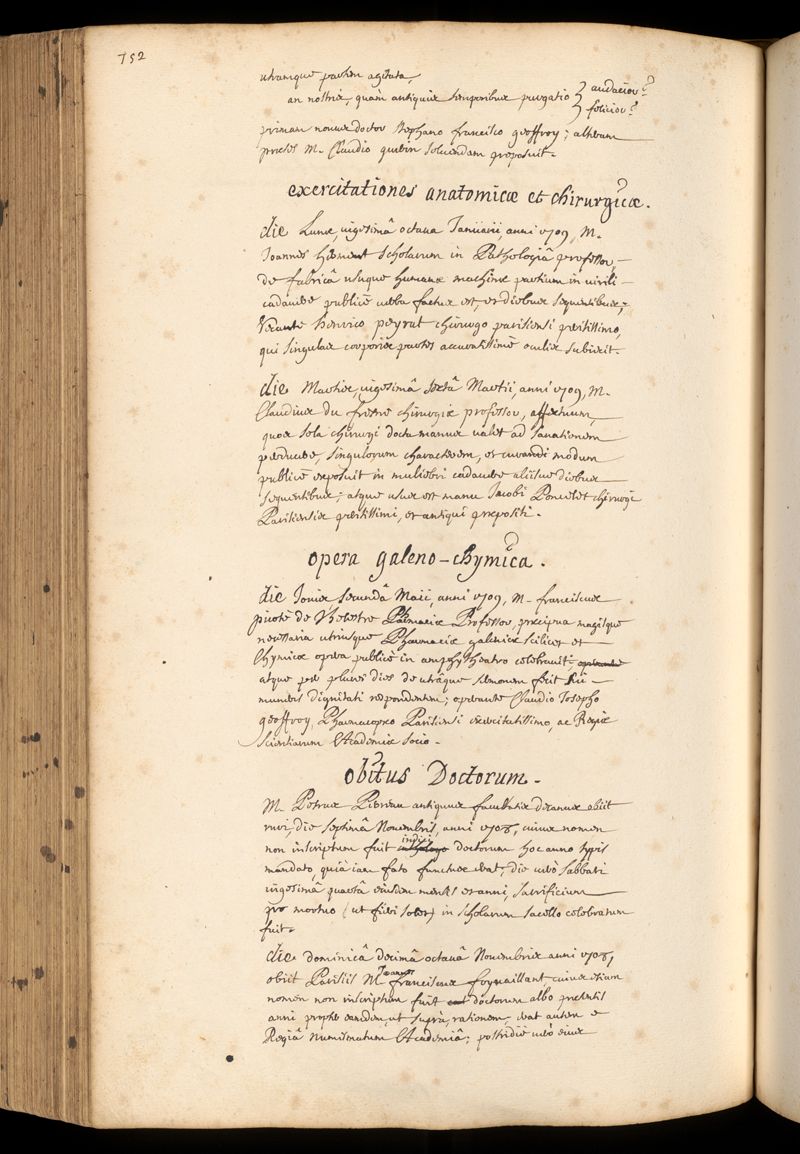 752
utramque partem agitata,
an nostris, quàm antiquis temporibus purgatio } audacior?
felicior?
primam nouus doctor stephano francisco geoffroy; alteram
proeses M. Claudio guerin soluendam proposuit.
exercitationes anatomicæ et chirurgicæ.
die Lunæ, uigesimâ octaua Januarii, anni 1709, M.
Joannes scholarum in Pathologiâ professor,
de fabricâ usuque humanæ machinæ partium in uirili
cadauere publicè uerba facturus est, et diebus sequentibus;
secante henrico peyrat chirurgo parisiensi peritissimo,
qui singulas corporis partes accuratissimè oculis subiecit.
die Martis, uigesimâ sextâ Martii, anni 1709, M.
Claudius du fresne chirurgiæ professor, affectuum,
quos sola chirurgi docta manus ualet ad sanationem
perducere, singulorum characterem, et curandi modum
publicè exposuit in muliebri cadauere aliisue diebus
sequentibus; atque usus est manu Jacobi Poncelet chirurgi
Parisiensis peritissimi, et antiqui præpositi.
opera galeno-chymica.
die Jouis secundâ Maii, anni 1709, M. franciscus
picoté de Belestre Pharmaciæ Professor, præcipua magisque
necessaria utriusque Pharmaciæ galenicæ scilicet et
Chymicæ opera publicè in amphytheatro celebrauit; operante
atque per plures dies de utrâque sermonem fecit sui
muneris dignitati respondentem; operante Claudio Josepho
geoffroy, Pharmacopæo Parisiensi exercitatissimo, ac Regiæ
Scientiarum Academiæ socio.
obitus Doctorum.
M. Petrus Perreau antiquus facultatis decanus obiit
ruri, die septimâ Nouembris, anni 1708, cuius nomen
non inscriptum fuit indici doctorum hoc anno typis
mandato, quià iam fato functus erat, die uerò sabbati
uigesimâ quartâ eiusdem mensis et anni, sacrificium
pro mortuo (ut fieri solet) in scholarum sacello celebratum
fuit.
die dominicâ decimâ octauâ Nouembris anni 1708,
obiit Parisiis M. Joannes franciscus foyuaillant, cuius etiam
nomen non inscriptum fuit doctorum albo præsentis
anni propter eandem, ut suprà, rationem; erat autem e
Regiâ Numismatum Academiâ; postridiè uerò eius